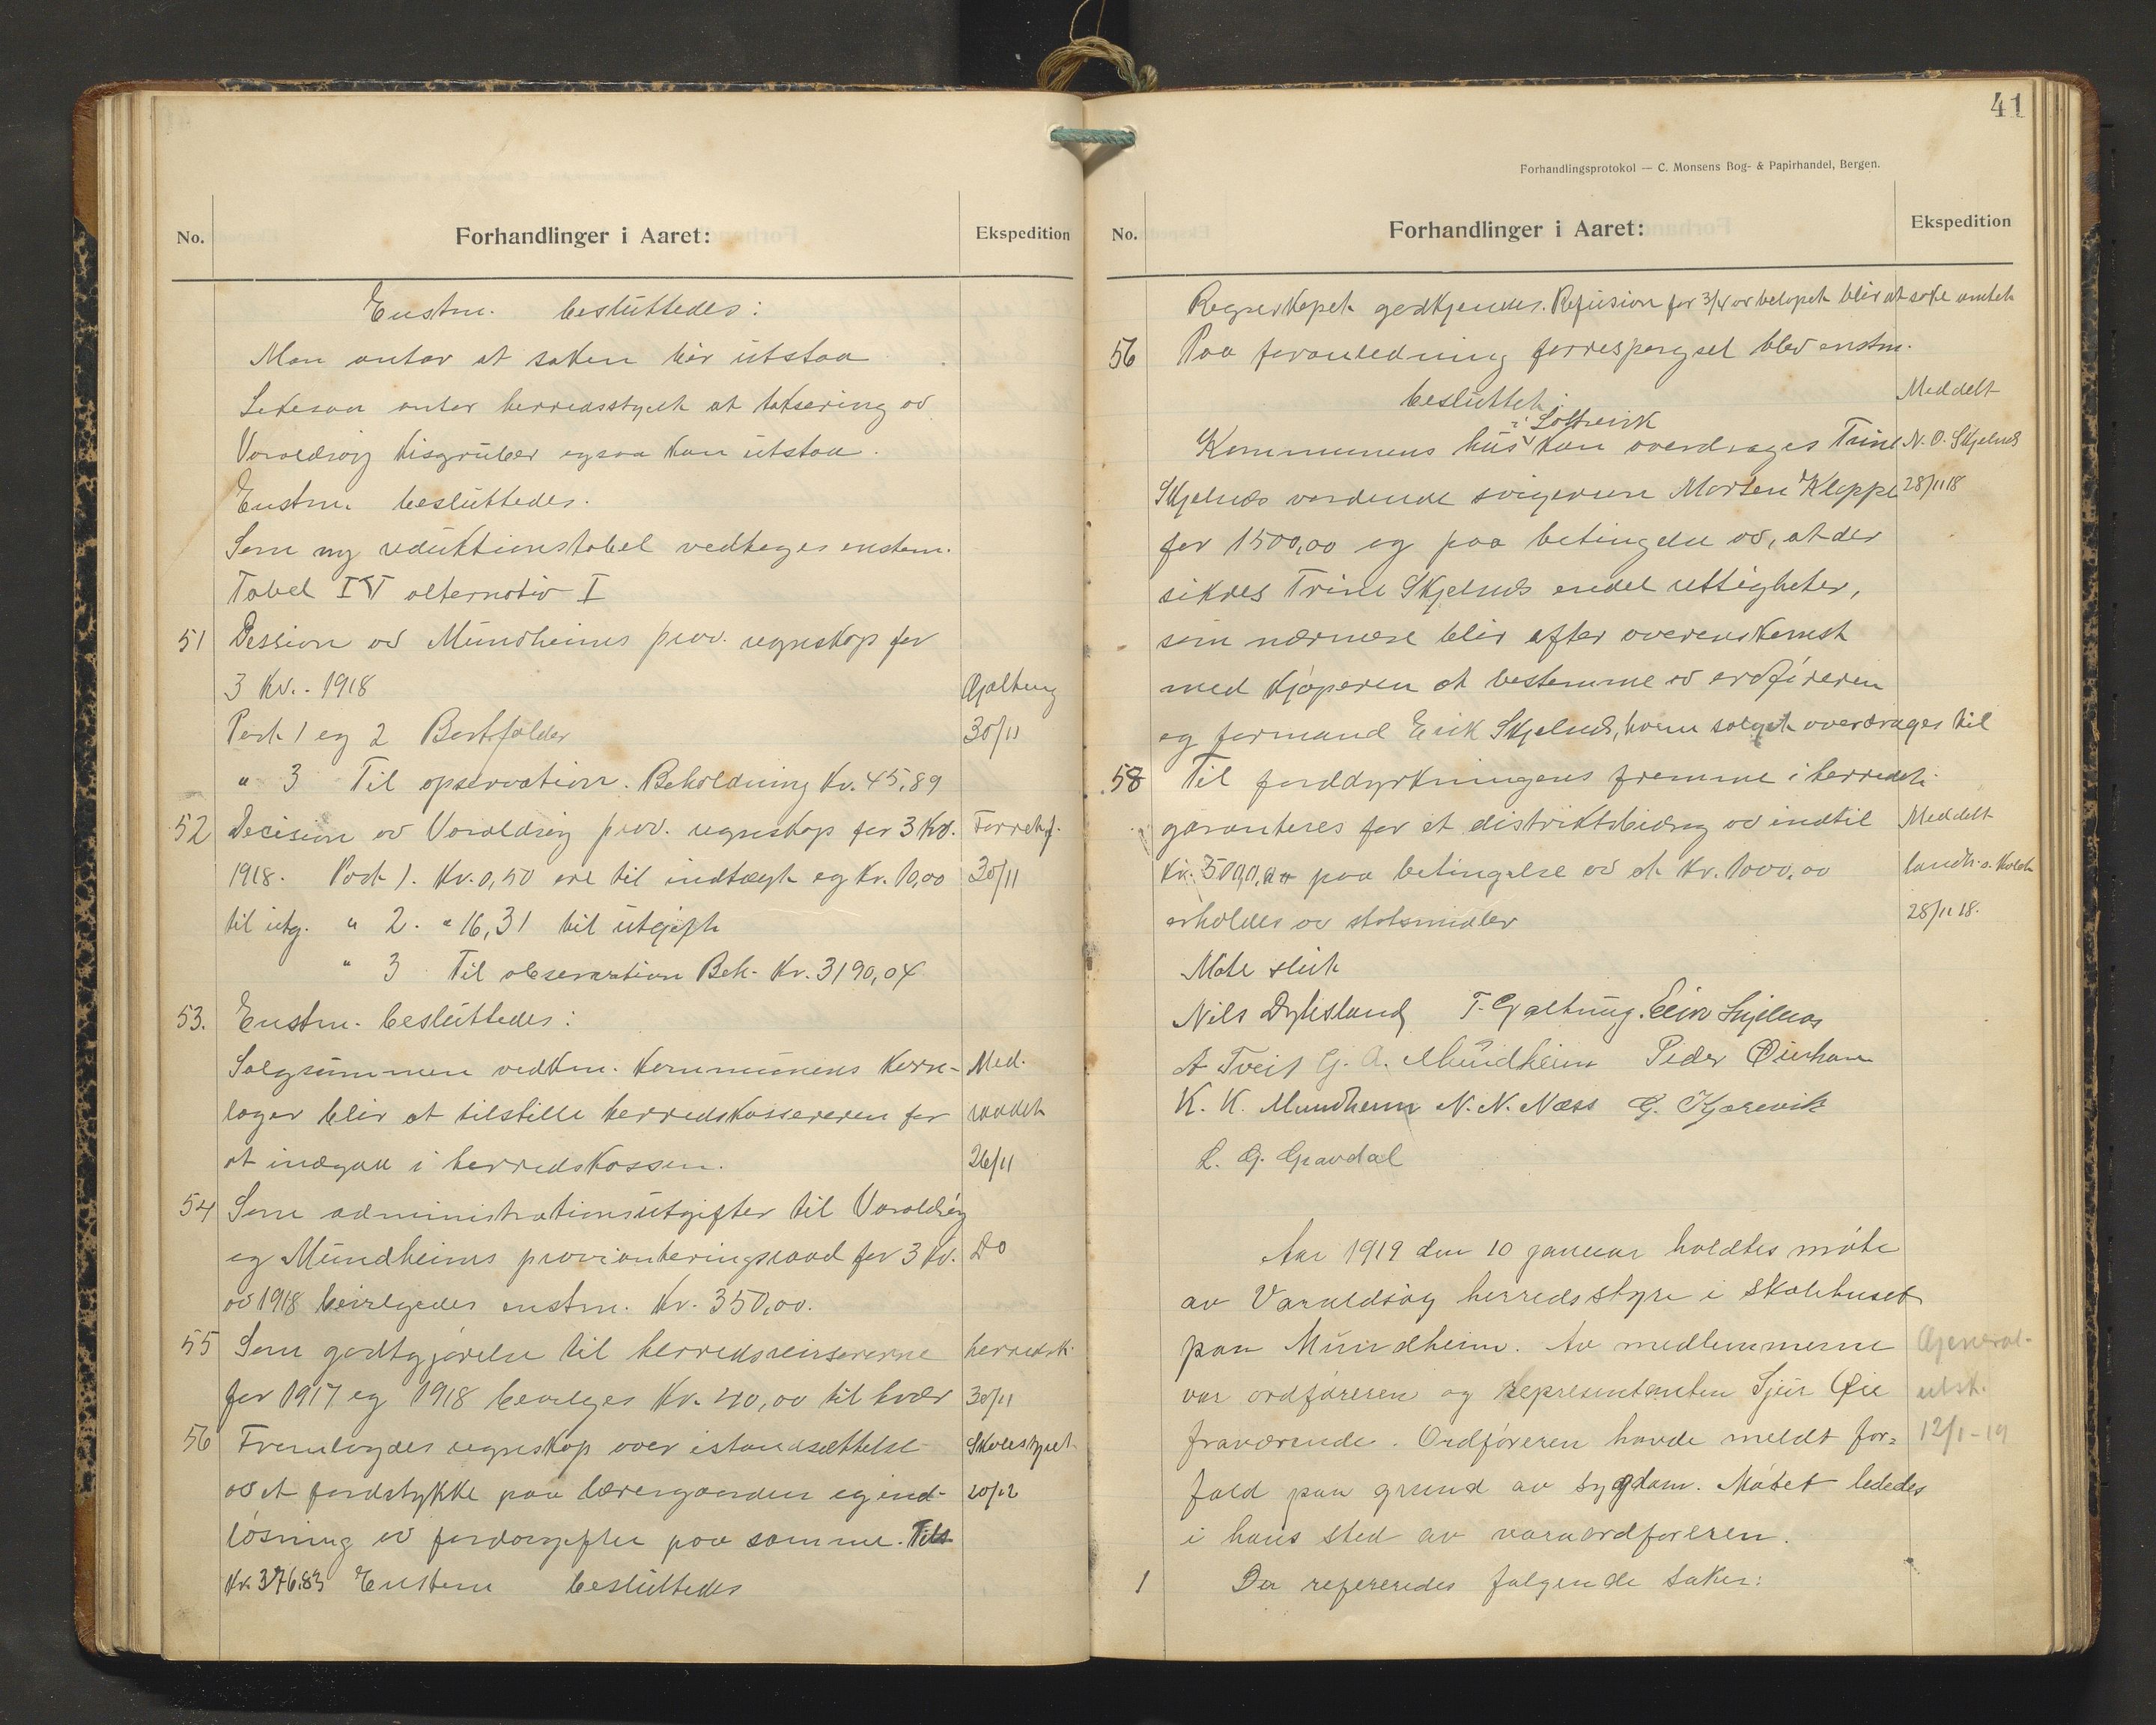 No.
Forhandlinger i Aaret:
Ekspedition
Enstm. besluttedes:
Man antar at saken bør utstaa
Likesaa antar herredsstyret at taksering av
Varaldsøy kisgruber ogsaa kan utstaa.
Enstm. besluttedes.
Som ny reduktionstabel vedtoges enstem.
Tabel IV alternativ I
51 Dession av Mundheims prov. regnskap for
3 Kv. - 1918 Gjaltung
Post 1 og 2 Bortfalder 30/11
" 3 Til opservation. Beholdning Kr. 45,89
52 Decision av Varaldsøy prov. regnskap for 3 Kv.
1918. Post 1. Kr. 0,50 øre til indtægt og Kr. 10,00 30/11
til utg. " 2. " 16,31 til utgift
" 3 Til observation Beh. Kr. 3190,04
53. Enstm. besluttedes:
Salgsummen vedkm. kommunens korn- Med.
lager blir at tilstille herredskassereren for raadet
at indgaa i herredskassen. 26/11
54 Som administrationsutgifter til Varaldsøy
og Mundheims provianteringsraad for 3 Kv. Do
av 1918 beviligedes enstm. Kr. 350,00.
55 Som godtgjørelse til herredsreviserne herredsk.
for 1917 og 1918 bevilges Kr. 40,00 til hver 30/11
56 Fremlagdes regnskap over istandsættelse Skolestyret
av et jordstykke paa lærergaarden og ind- 20/12
løsning av jordavgifter paa samme.
Kr. 376.83 Enstem besluttedes
41
Forhandlingsprotokol — C. Monsens Bog- & Papirhandel, Bergen.
No.
Forhandlinger i Aaret:
Ekspedition
Regnskapet godkjendes. Refusion for 3/4 av beløpet blir at søke amtet
56 Paa foranledning forrespørgsel blev enstm.
besluttet: Meddelt
i Løftevik
Kommunens hus kan overdrages Trine N. O. Skjelnes
Skjelnæs vordende svigersøn Morten Kleppe 28/11 18
for 1500,00 og paa betingelse av, at der
sikres Trine Skjelnæs endel rettigheter,
som nærmere blir efter overenskomst
med kjøperen at bestemme av ordføreren
og formand Erik Skjelnæs, hvem salget overdrages til
58 Til jorddyrkningens fremme i herredet
garanteres for et distriktsbidrag av indtil Meddelt
paa betingelse av at Kr. 1000,00
erholdes av statsmidler 28/11 18.
Møte slut
Nils Dyhesland T. Gjaltung. Eirik Skjelnæs
A Tveit G. A. Mundheim Peder Øierhavn
K. K. Mundheim N. N. Næss G. Kjærevik
L. G. Gravdal
Aar 1919 den 10 januar holdtes møte
av Varaldsøy herredsstyre i skolehuset
paa Mundheim. Av medlemmerne General-
var ordføreren og representanten Sjur Øie utsk.
fraværende. Ordføreren havde meldt for- 12/1-19
fald paa grund av sygdom. Møtet lededes
i hans sted av varaordføreren.
1 Der refereredes følgende saker: